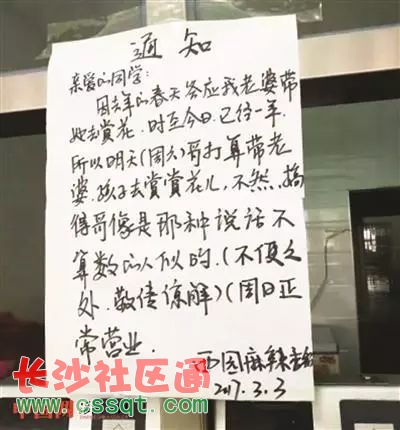 通知
亲爱的同学:
因去年的春天答应我老婆带
她去赏花.时至今日.已经一年.
所以明天(周六)哥打算带老
婆.孩子去赏赏花儿,不然,搞
得哥像是那种说话不
算数的人似的.(不便之
处.敬请谅解)(周日正
常营业.
西园麻辣香锅
2017.3.3
长沙社区通
www.cssqt.com